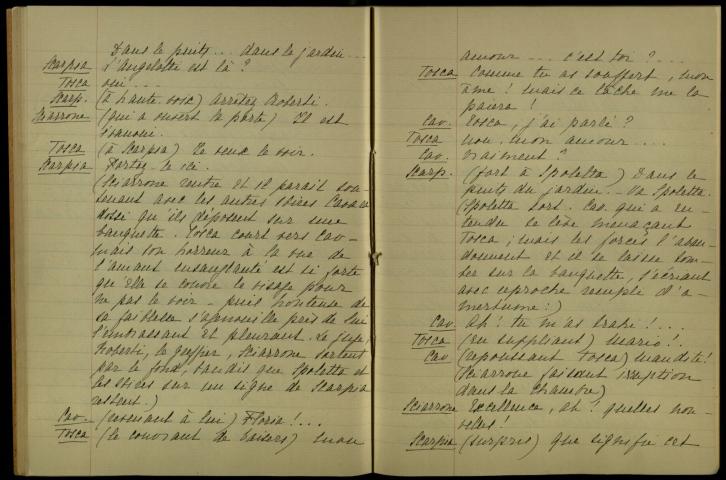 Dans le puits ... dans le jardin ...
Scarpia L'Angelotti est là ?
Tosca oui ...
Scarp. (à haute voix) arrêtez Roberti.
Sciarrone (qui a ouvert la porte) Il est
évanoui.
Tosca (à Scarpia) Je veux le voir.
Scarpia Portez-le ici.
(Sciarrone rentre et il parait sou-
tenant avec les autres sbires Cavara
dossi qu'ils déposent sur une
banquette. Tosca court vers Cav-
mais son horreur à la vue de
l'amant ensanglanté est si forte
qu'elle se couvre le visage pour
ne pas le voir - puis honteuse de
sa faiblesse s'agenouille près de lui
l'embrassant et pleurant. Le juge,
Roberti, le greffier, Sciarrone sortent
par le fond, tandis que Spoletta et
les sbires sur un signe de Scarpia
restent.)
Cav. (revenant à lui) Floria !...
Tosca (le couvrant de baisers) mon
amour ... c'est toi ?...
Tosca Comme tu as souffert, mon
âme ! mais ce lâche me la
paiera !
Cav. Tosca, j'ai parlé ?
Tosca non, mon amour ....
Cav. vraiment ?
Scarp. (fort à Spoletta) Dans le
puits du jardin - va Spoletta.
(Spoletta sort. Cav. qui a en-
tendu se lève menaçant
Tosca ; mais les forces l'aban-
donnent et il se laisse tom-
ber sur la banquette, s'écriant
avec reproche remple d'a-
mertume :)
Cav. Ah ! tu m'as trahi !...
Tosca (en suppliant) Mario !
Cav. (repoussant Tosca) maudite !
(Sciarrone faisant irruption
dans la chambre)
Sciarrone Excellence, ah ! quelles nou-
velles !
Scarpia (surpris) que signifie cet